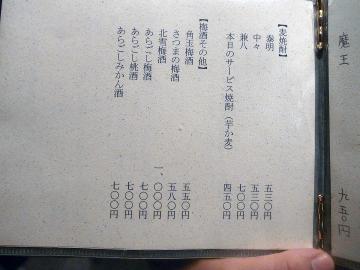 魔王 九五〇円
【麦焼酎】
泰明 五三〇円
中々 五三〇円
兼八 七〇〇円
本日のサービス焼酎(芋か麦) 四五〇円
【梅酒その他】
角玉梅酒 五五〇円
さつまの梅酒 五八〇円
北雪梅酒 一、〇〇〇円
あらごし梅酒 七〇〇円
あらごし桃酒 七〇〇円
あらごしみかん酒 七〇〇円